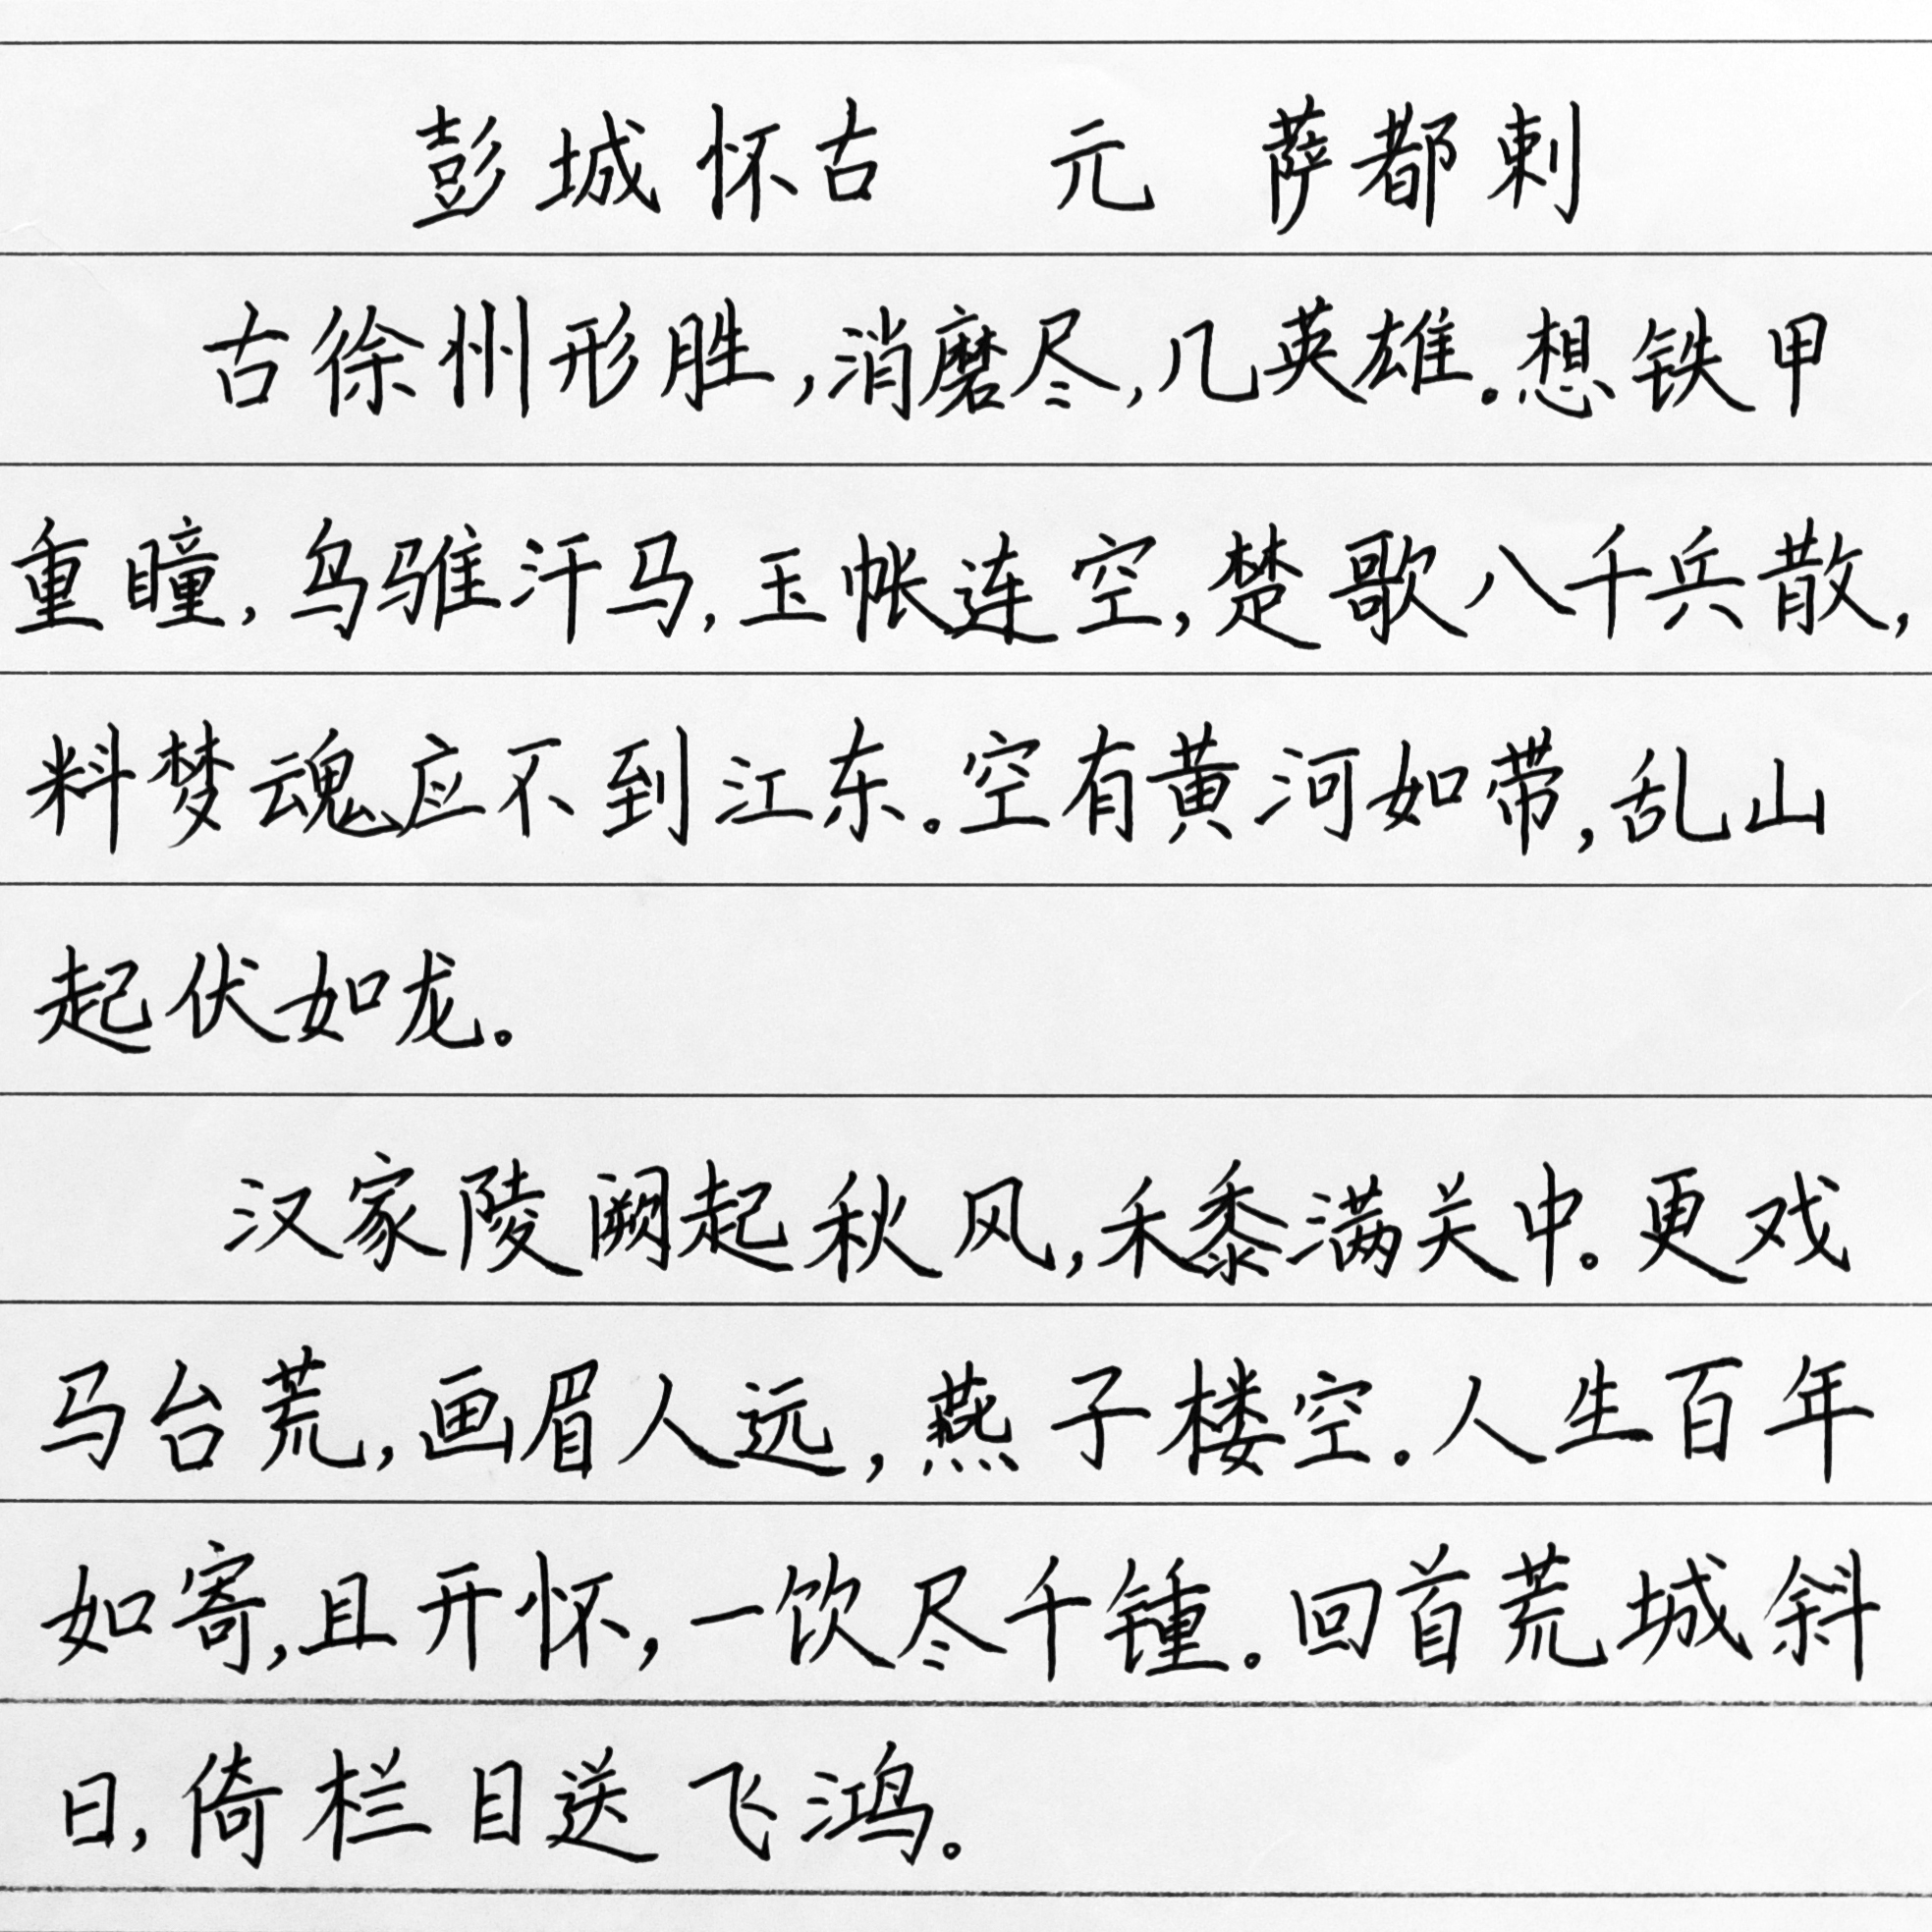 彭城怀古 元 萨都剌
古徐州形胜，消磨尽，几英雄。想铁甲
重瞳，乌骓汗马，玉帐连空，楚歌八千兵散，
料梦魂应不到江东。空有黄河如带，乱山
起伏如龙。
汉家陵阙起秋风，禾黍满关中。更戏
马台荒，画眉人远，燕子楼空。人生百年
如寄，且开怀，一饮尽千锺。回首荒城斜
日，倚栏目送飞鸿。